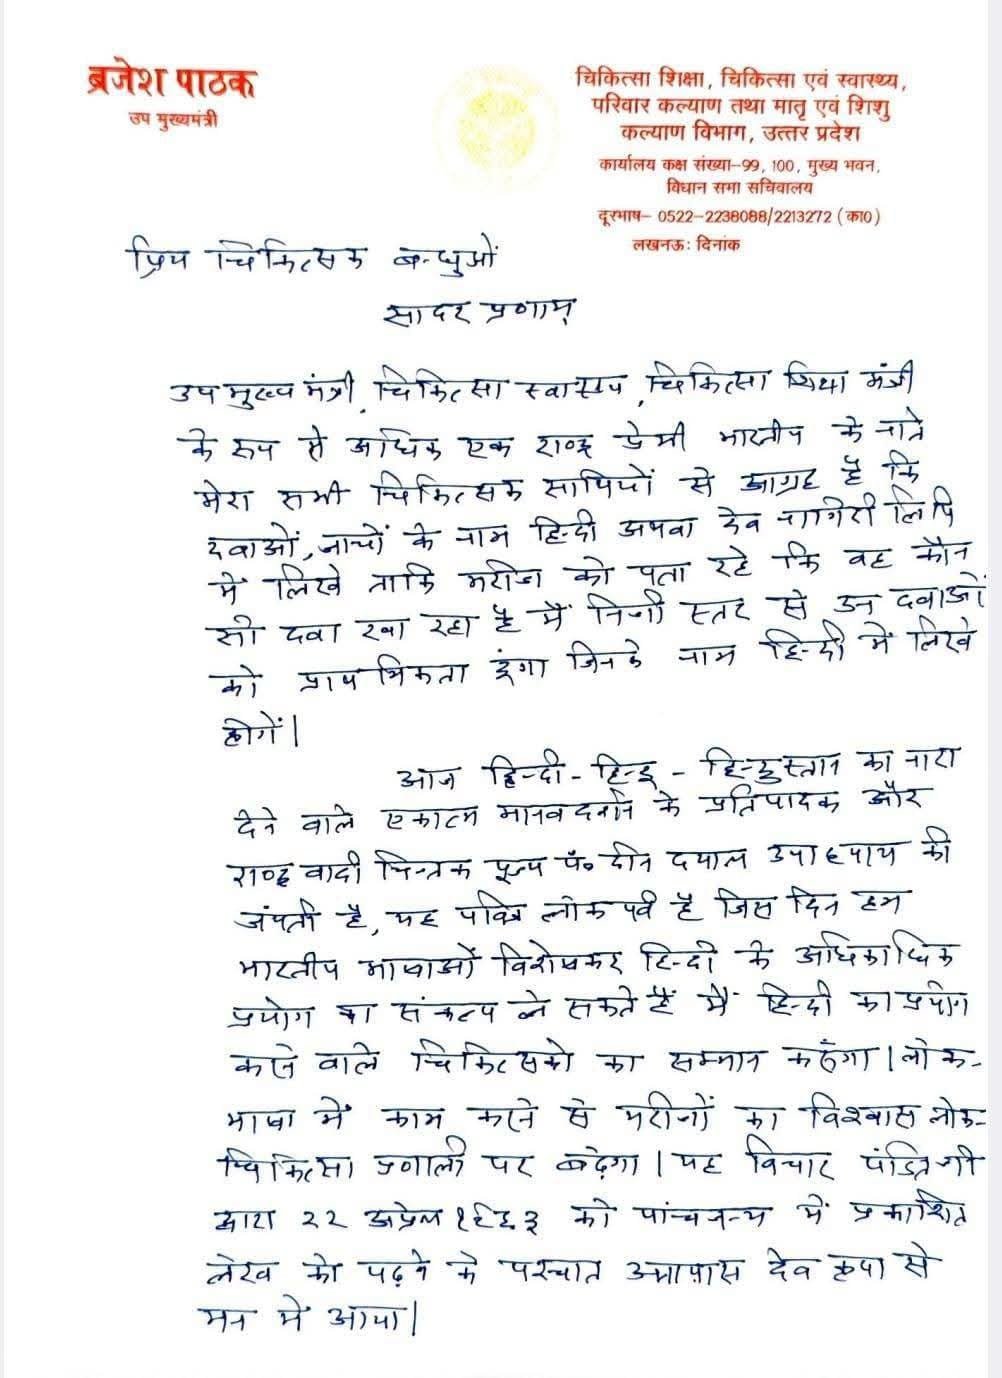 ब्रजेश पाठक
उप मुख्यमंत्री
चिकित्सा शिक्षा, चिकित्सा एवं स्वास्थ्य,
परिवार कल्याण तथा मातृ एवं शिशु
कल्याण विभाग, उत्तर प्रदेश
कार्यालय कक्ष संख्या-99, 100, मुख्य भवन,
विधान सभा सचिवालय
दूरभाष- 0522-2238088/2213272 (का0)
लखनऊ: दिनांक
प्रिय चिकित्सक बन्धुओं
सादर प्रणाम्
उप मुख्य मंत्री, चिकित्सा स्वास्थ्य, चिकित्सा शिक्षा मंत्री
के रूप से अधिक एक राष्ट्र प्रेमी भारतीय के नाते
मेरा सभी चिकित्सक साथियों से आग्रह है कि
दवाओं, जाचों के नाम हिन्दी अथवा देव नागिरी लिपि
में लिखे ताकि मरीज को पता रहे कि वह कौन
सी दवा खा रहा है मैं निजी स्तर से उन दवाओं
को प्राथमिकता दूंगा जिनके नाम हिन्दी में लिखे
होगें।
आज हिन्दी - हिन्दू - हिन्दुस्तान का नारा
देने वाले एकात्म मानव दर्शन के प्रतिपादक और
राष्ट्र वादी चिन्तक पूज्य पं० दीन दयाल उपाध्याय की
जंयती है, यह पवित्र लोक पर्व है जिस दिन हम
भारतीय भाषाओं विशेषकर हिन्दी के अधिकाधिक
प्रयोग का संकल्प ले सकते हैं मैं हिन्दी का प्रयोग
करने वाले चिकित्सको का सम्मान करुंगा। लोक-
भाषा में काम करने से मरीजों का विश्वास लोक-
चिकित्सा प्रणाली पर बढ़ेगा। यह विचार पंडित जी
द्वारा २२ अप्रैल १९६३ को पांचजन्य में प्रकाशित
लेख को पढ़ने के पश्चात अनायास देव कृपा से
मन में आया।